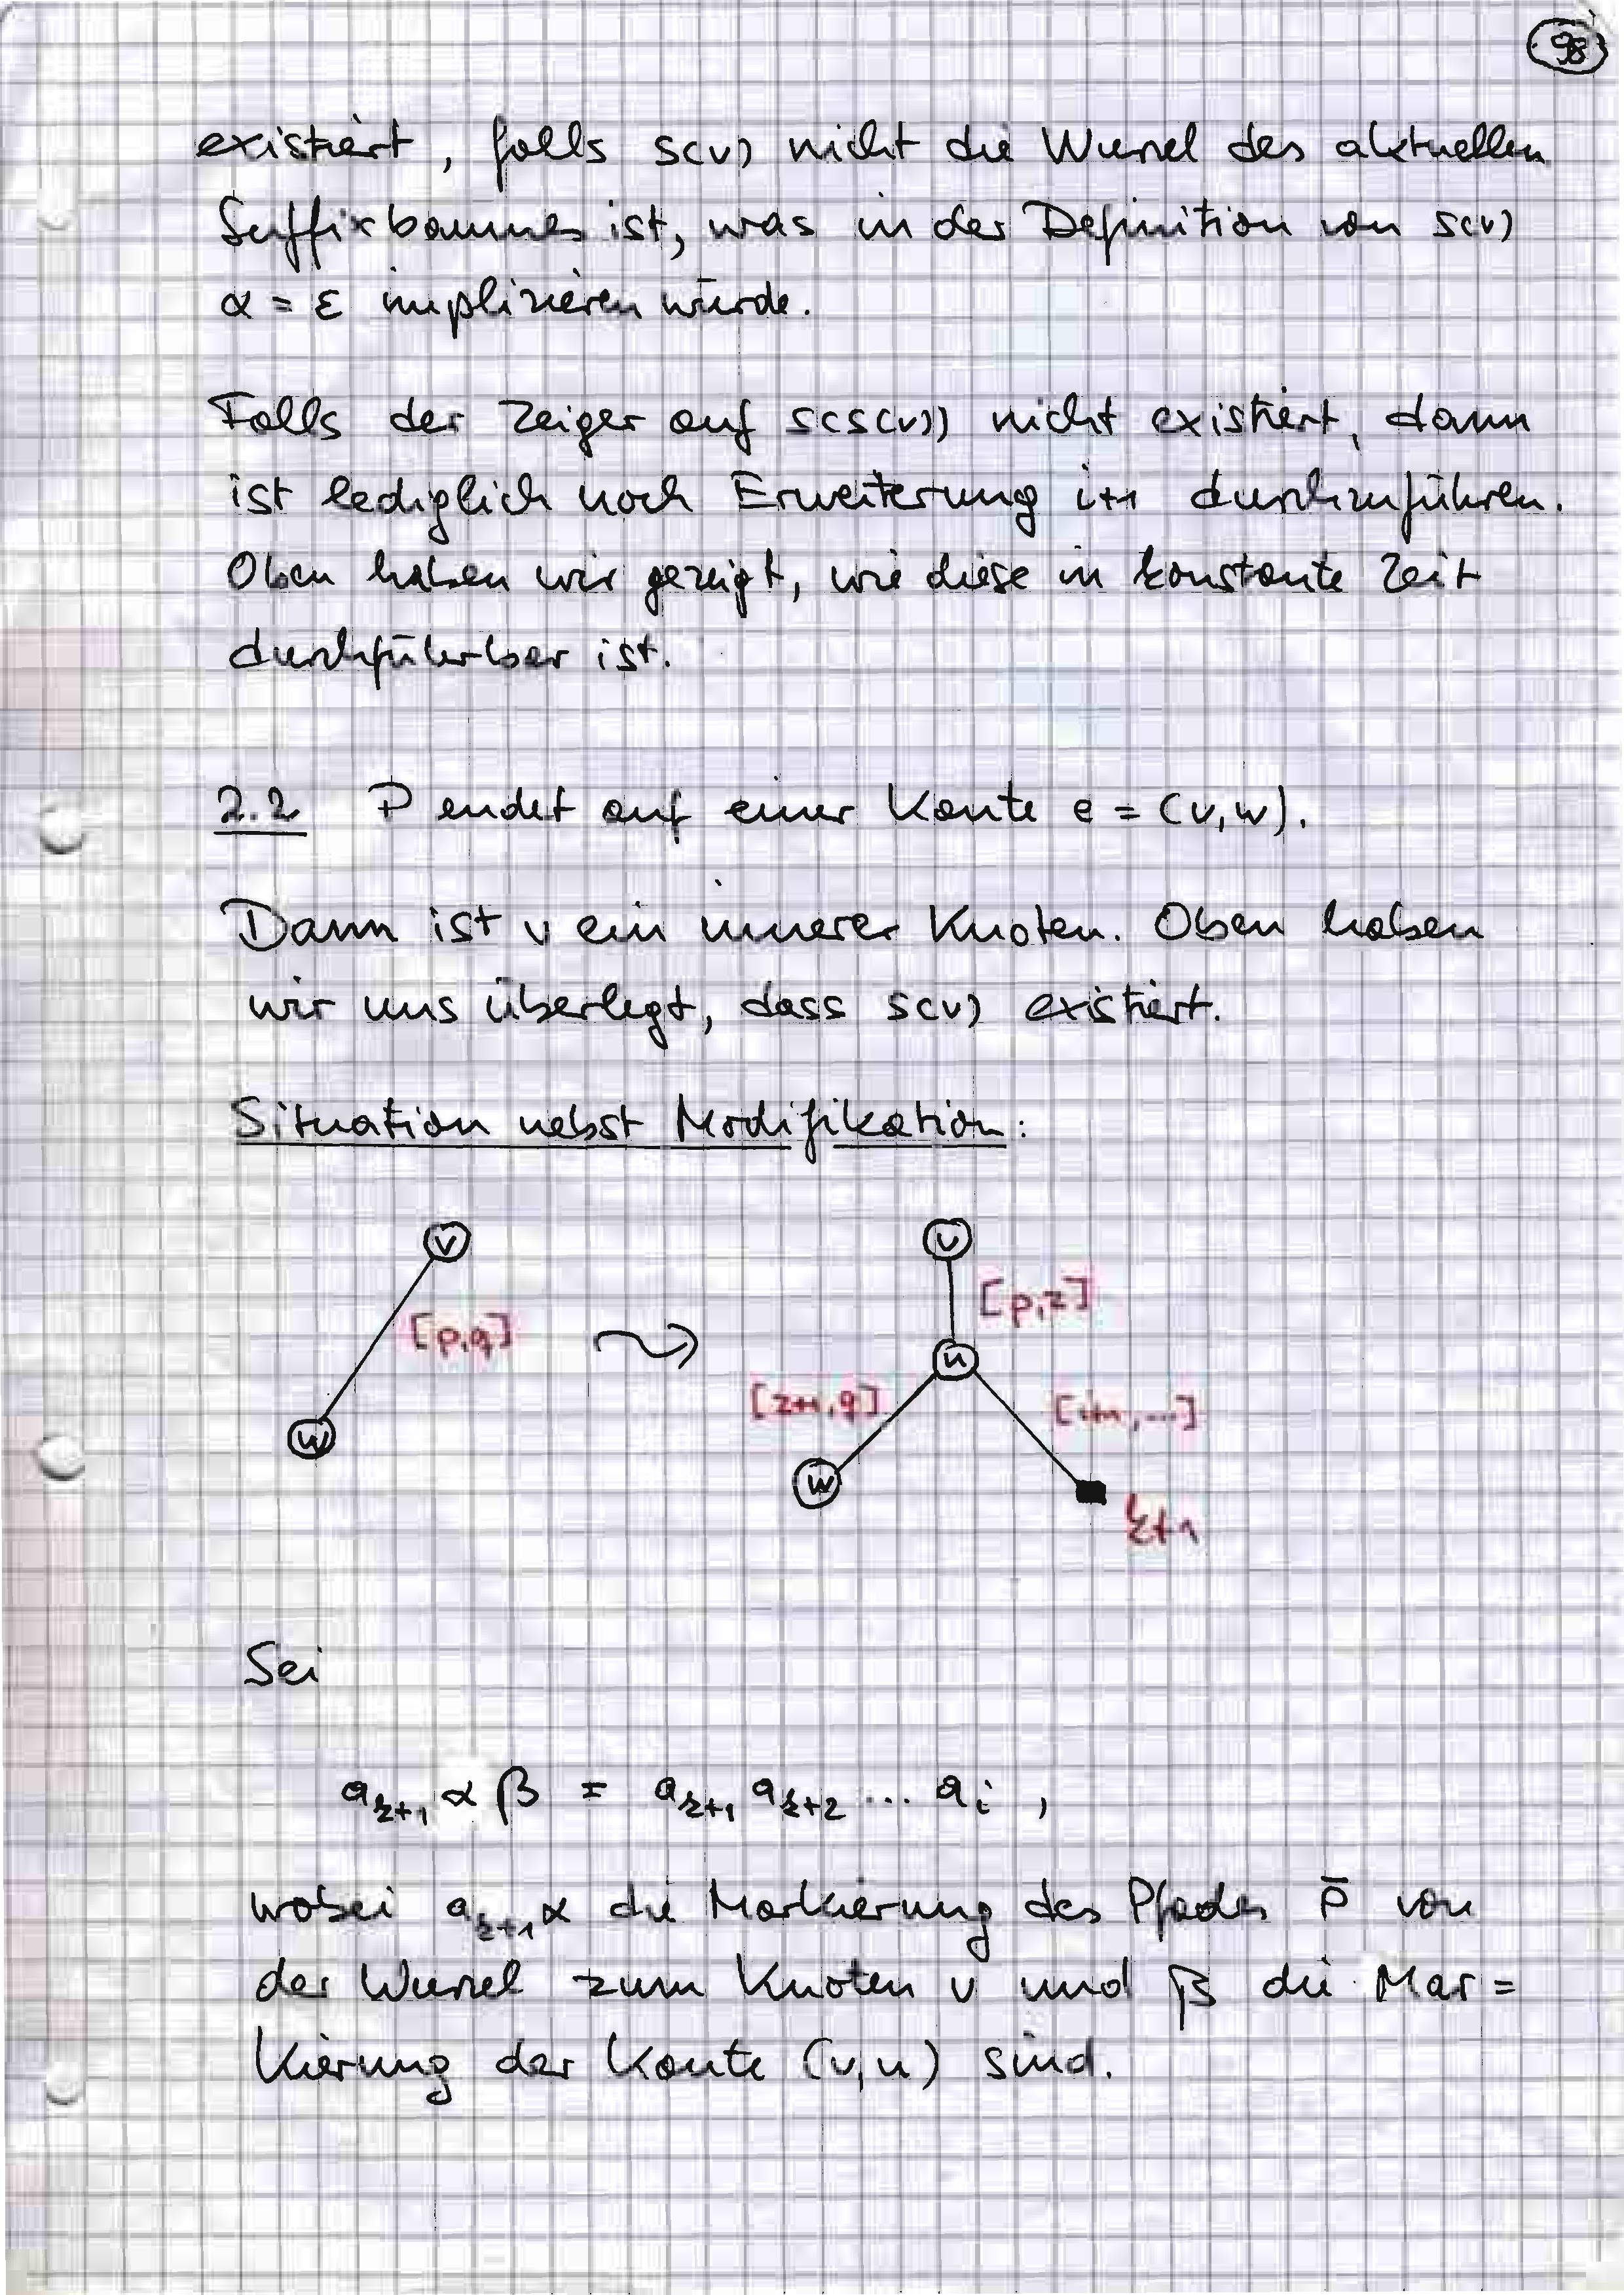 98
existiert, falls s(v) nicht die Wurzel des aktuellen
Suffixbaumes ist, was in der Definition von s(v)
α = ε implizieren würde.
Falls der Zeiger auf s(s(v)) nicht existiert, dann
ist lediglich noch Erweiterung i+1 durchzuführen.
Oben haben wir gezeigt, wie diese in konstante Zeit
durchführbar ist.
2.2 P endet auf einer Kante e = (v,w).
Dann ist v ein innerer Knoten. Oben haben
wir uns überlegt, dass s(v) existiert.
Situation nebst Modifikation:
v v
[p,z]
[p,q]
u
[z+1,q] [i+1,...]
w
w
k+1
Sei
a_{k+1} α β = a_{k+1} a_{k+2} ... a_i ,
wobei a_{k+1} α die Markierung des Pfades P̄ von
der Wurzel zum Knoten v und β die Mar=
kierung der Kante (v,u) sind.